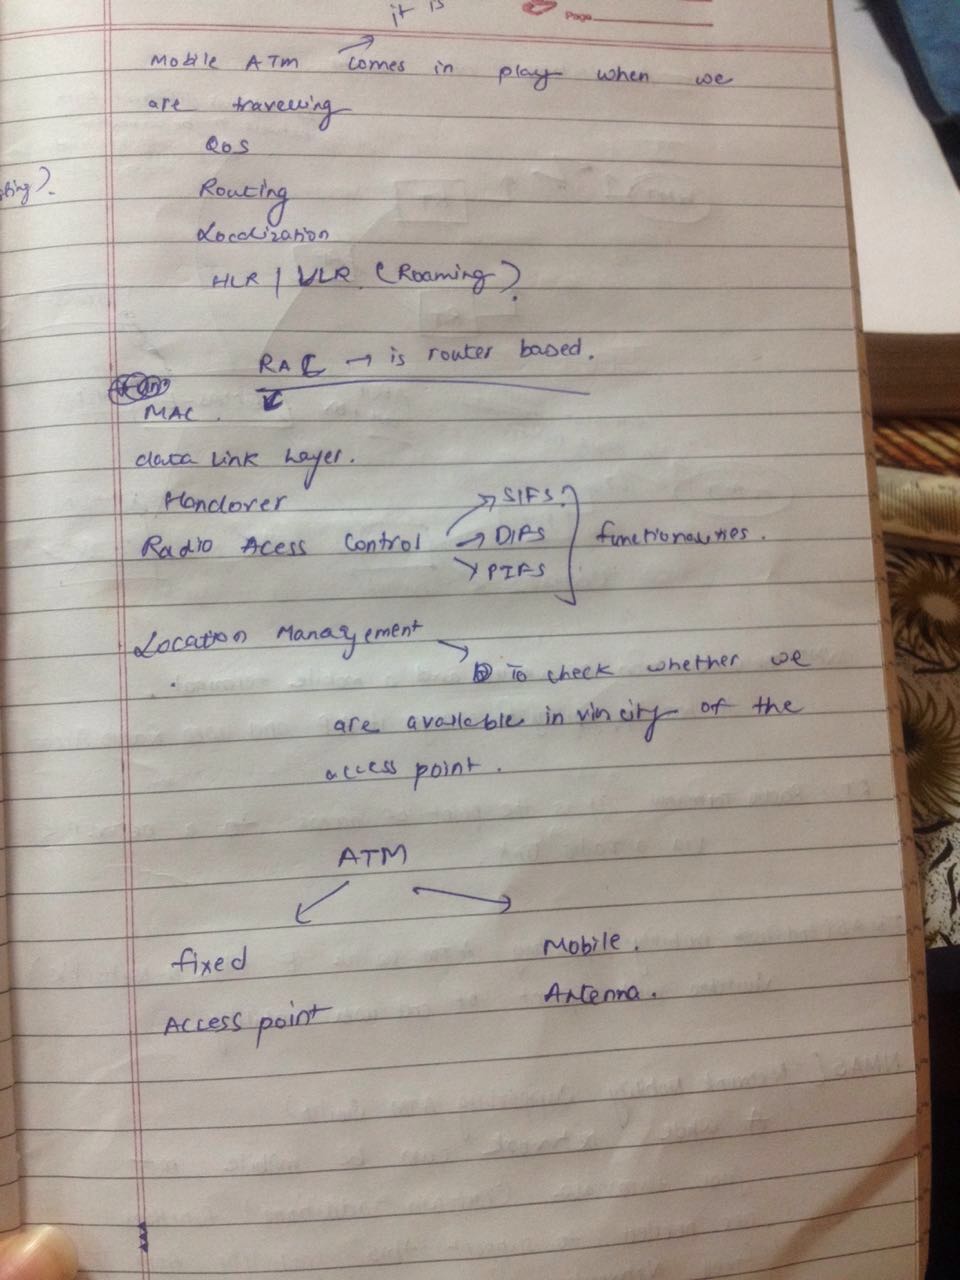 it is
Page
Mobile ATM comes in play when we
are travelling
QoS
Routing
Localization
HLR / VLR (Roaming).
RAC → is router based.
MAC.
data Link Layer.
Handover
Radio Acess Control → SIFS.
→ DIFS
→ PIFS
functionalities.
Location Management
→ To check whether we
are available in vincity of the
access point.
ATM
fixed
Mobile.
Access point
Antenna.